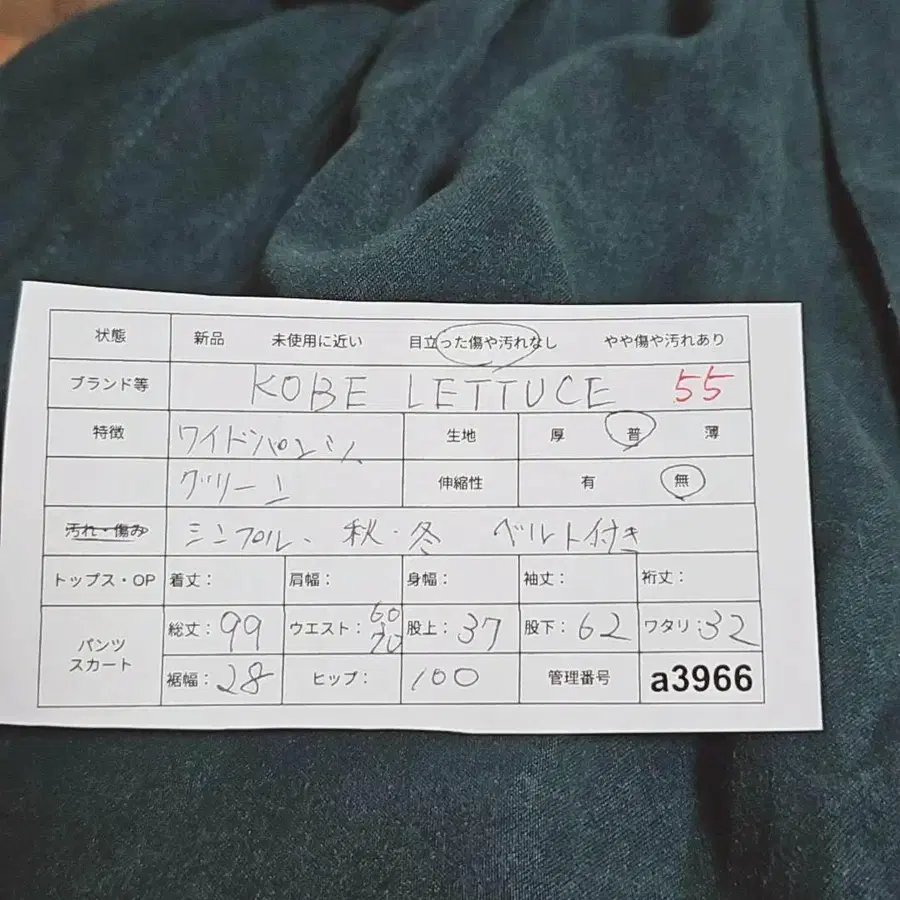 状態 新品 未使用に近い 目立った傷や汚れなし やや傷や汚れあり
ブランド等 KOBE LETTUCE 55
特徴 ワイドパンツ 生地 厚 普 薄
グリーン 伸縮性 有 無
汚れ・傷み シンプル、秋・冬 ベルト付き
トップス・OP 着丈: 肩幅: 身幅: 袖丈: 裄丈:
パンツ スカート 総丈:99 ウエスト:60 70 股上:37 股下:62 ワタリ:32
裾幅:28 ヒップ: 100 管理番号 a3966